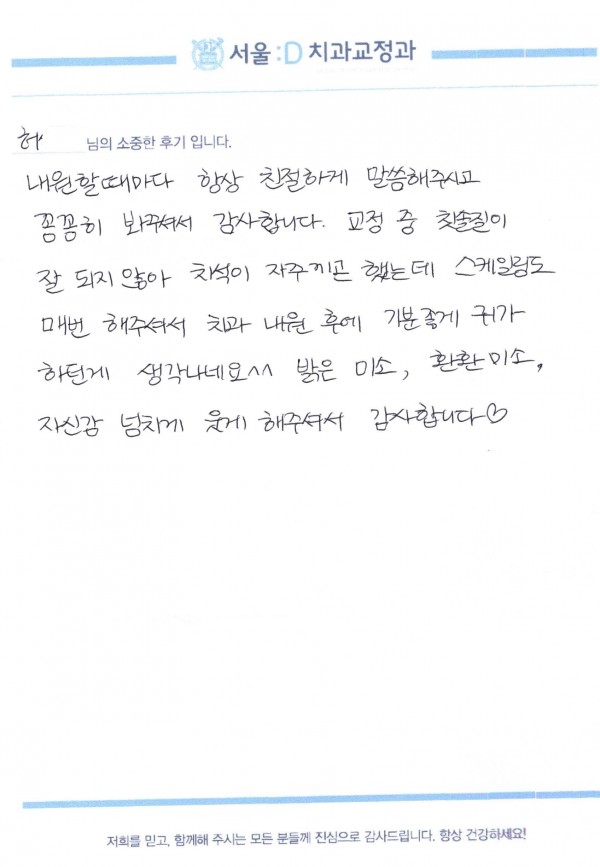 서울 :D 치과교정과
허 님의 소중한 후기 입니다.
내원할때마다 항상 친절하게 말씀해주시고
꼼꼼히 봐주셔서 감사합니다. 교정 중 칫솔질이
잘 되지 않아 치석이 자주끼곤 했는데 스케일링도
매번 해주셔서 치과 내원 후에 기분좋게 귀가
하던게 생각나네요^^ 밝은 미소, 환환미소,
자신감 넘치게 웃게 해주셔서 감사합니다♡
저희를 믿고, 함께해 주시는 모든 분들께 진심으로 감사드립니다. 항상 건강하세요!